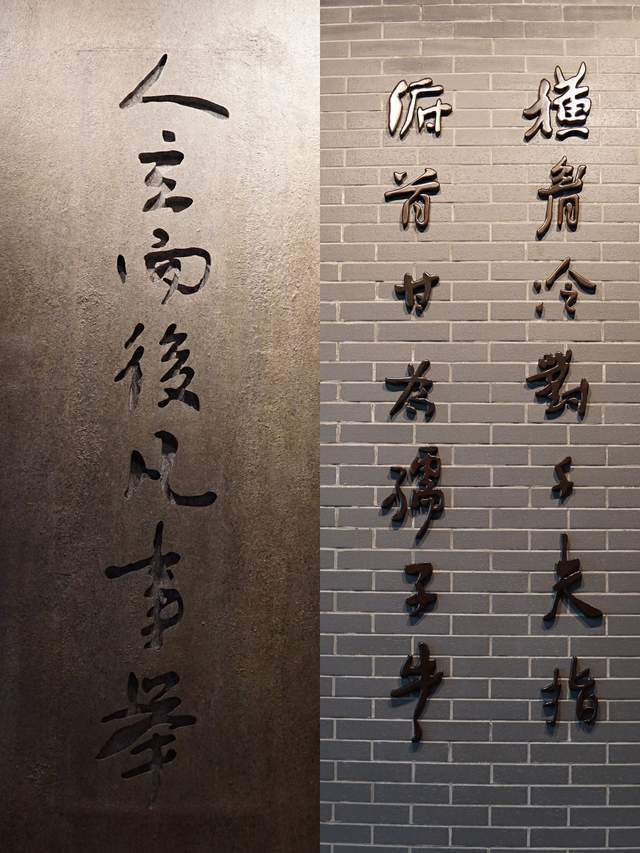 人立而後凡事舉
橫眉冷對千夫指
俯首甘為孺子牛